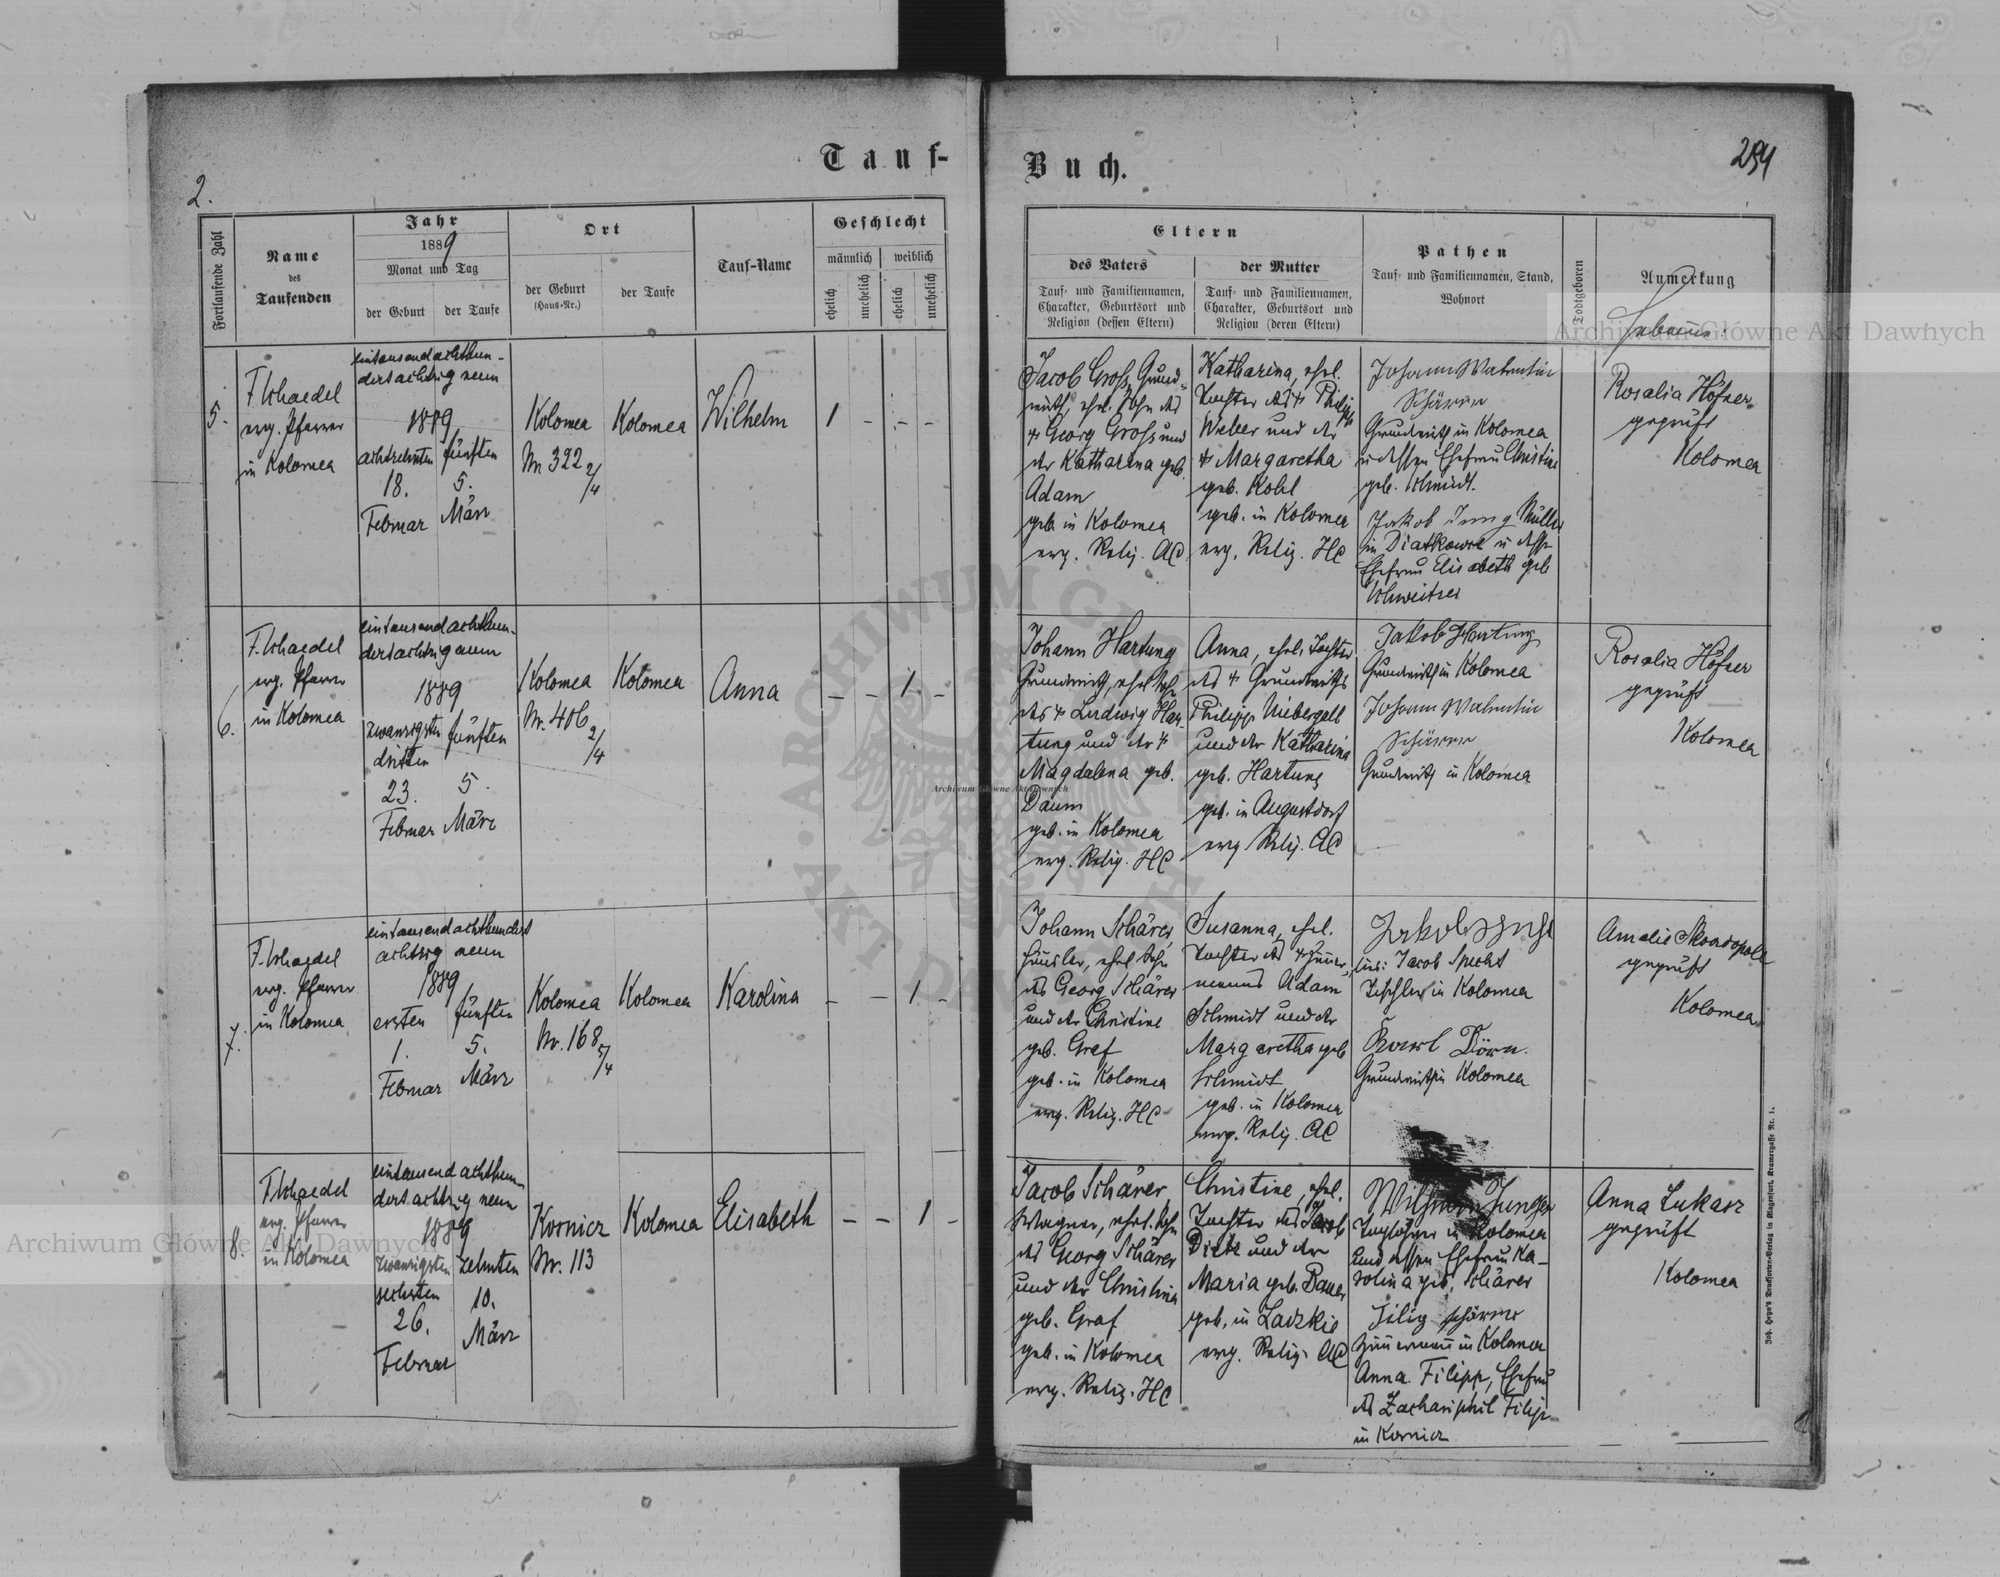 Tauf-
Buch.
2.
254
Fortlaufende Zahl
Name
des
Taufenden
Jahr
1889
Monat und Tag
der Geburt
der Taufe
Ort
der Geburt
(Haus-Nr.)
der Taufe
Tauf-Name
Geschlecht
männlich
weiblich
ehelich
unehelich
ehelich
unehelich
Eltern
des Vaters
Tauf- und Familiennamen,
Charakter, Geburtsort und
Religion (dessen Eltern)
der Mutter
Tauf- und Familiennamen,
Charakter, Geburtsort und
Religion (deren Eltern)
Pathen
Tauf- und Familiennamen, Stand,
Wohnort
Todtgeboren
Anmerkung
5.
evg. Pfarrer
in Kolomea
eintausendachthun-
dertachtzig neun
1889
achtzehnten
18.
Februar
fünften
5.
März
Kolomea
Nr. 322 2/4
Kolomea
Wilhelm
1 - - -
Jacob Gross, Grund-
wirth, ehel. Sohn des
† Georg Gross und
der Katharina geb.
Adam
geb. in Kolomea
evg. Relig. AC
Katharina, ehel.
Tochter des † Philipp
Weber und der
† Margaretha
geb. Kohl
geb. in Kolomea
evg. Relig. HC
Johann Walentin
Schärer
Grundwirth in Kolomea
u dessen Ehefrau Christine
geb. Schmidt.
Jakob Jung Müller
in Diatkowce u dessen
Ehefrau Elisabeth geb
Schweitzer
Rosalia Höfner
geprüft
Kolomea
6.
evg. Pfarrer
in Kolomea
eintausendachthun-
dertachtzig neun
1889
zwanzigsten
dritten
23.
Februar
fünften
5.
März
Kolomea
Nr. 406 2/4
Kolomea
Anna
- - 1. -
Johann Hartung
Grundwirth, ehel Sohn
des † Ludwig Har
tung und der †
Magdalena geb.
Daum
geb. in Kolomea
evg. Relig. HC
Anna, ehel. Tochter
des † Grundwirths
Philipp Uibergall
und der Katharina
geb. Hartung
geb. in Augustdorf
evg Relig. AC
Jakob Hartung
Grundwirth in Kolomea
Johann Walentin
Schärer
Grundwirth in Kolomea
Rosalia Höfner
geprüft
Kolomea
7.
evg. Pfarrer
in Kolomea
eintausendachthundert
achtzig neun
1889
ersten
1.
Februar
fünften
5.
März
Kolomea
Nr. 168 5/4
Kolomea
Karolina
- - 1 -
Johann Schärer,
Häusler, ehel Sohn
des Georg Schärer
und der Christine
geb. Graf
geb. in Kolomea
evg. Relig. HC
Susanna, ehel.
Tochter des † Zimmer-
manns Adam
Schmidt und der
Margaretha geb
Schmidt
geb. in Kolomea
evg. Relig. AC
Jacob Specht
Tischler in Kolomea
Karl Dörn.
Grundwirth in Kolomea
Amalie
geprüft
Kolomea
8.
evg. Pfarrer
in Kolomea
eintausend achthun-
dert achtzig neun
1889
zwanzigsten
sechsten
26.
Februar
zehnten
10.
März
Kornicz
Nr. 113
Kolomea
Elisabeth
- - 1 -
Jacob Schärer
Wagner, ehel. Sohn
des Georg Schärer
und der Christina
geb. Graf
geb. in Kolomea
evg. Relig. HC
Christine, ehel.
Tochter des Jacob
Dietz und der
Maria geb. Bauer
geb. in Ladzkie
evg. Relig. AC
Wilhelm Junger
in Kolomea
und dessen Ehefrau Ka-
rolina geb. Schärer
Filip Schärer
Zimmermann in Kolomea
Anna Filipp, Ehefrau
des Filip
in Kornicz
Anna Lukasz
geprüft
Kolomea
Archiwum Główne Akt Dawnych
Archiwum Główne Akt Dawnych
Archiwum Główne Akt Dawnych